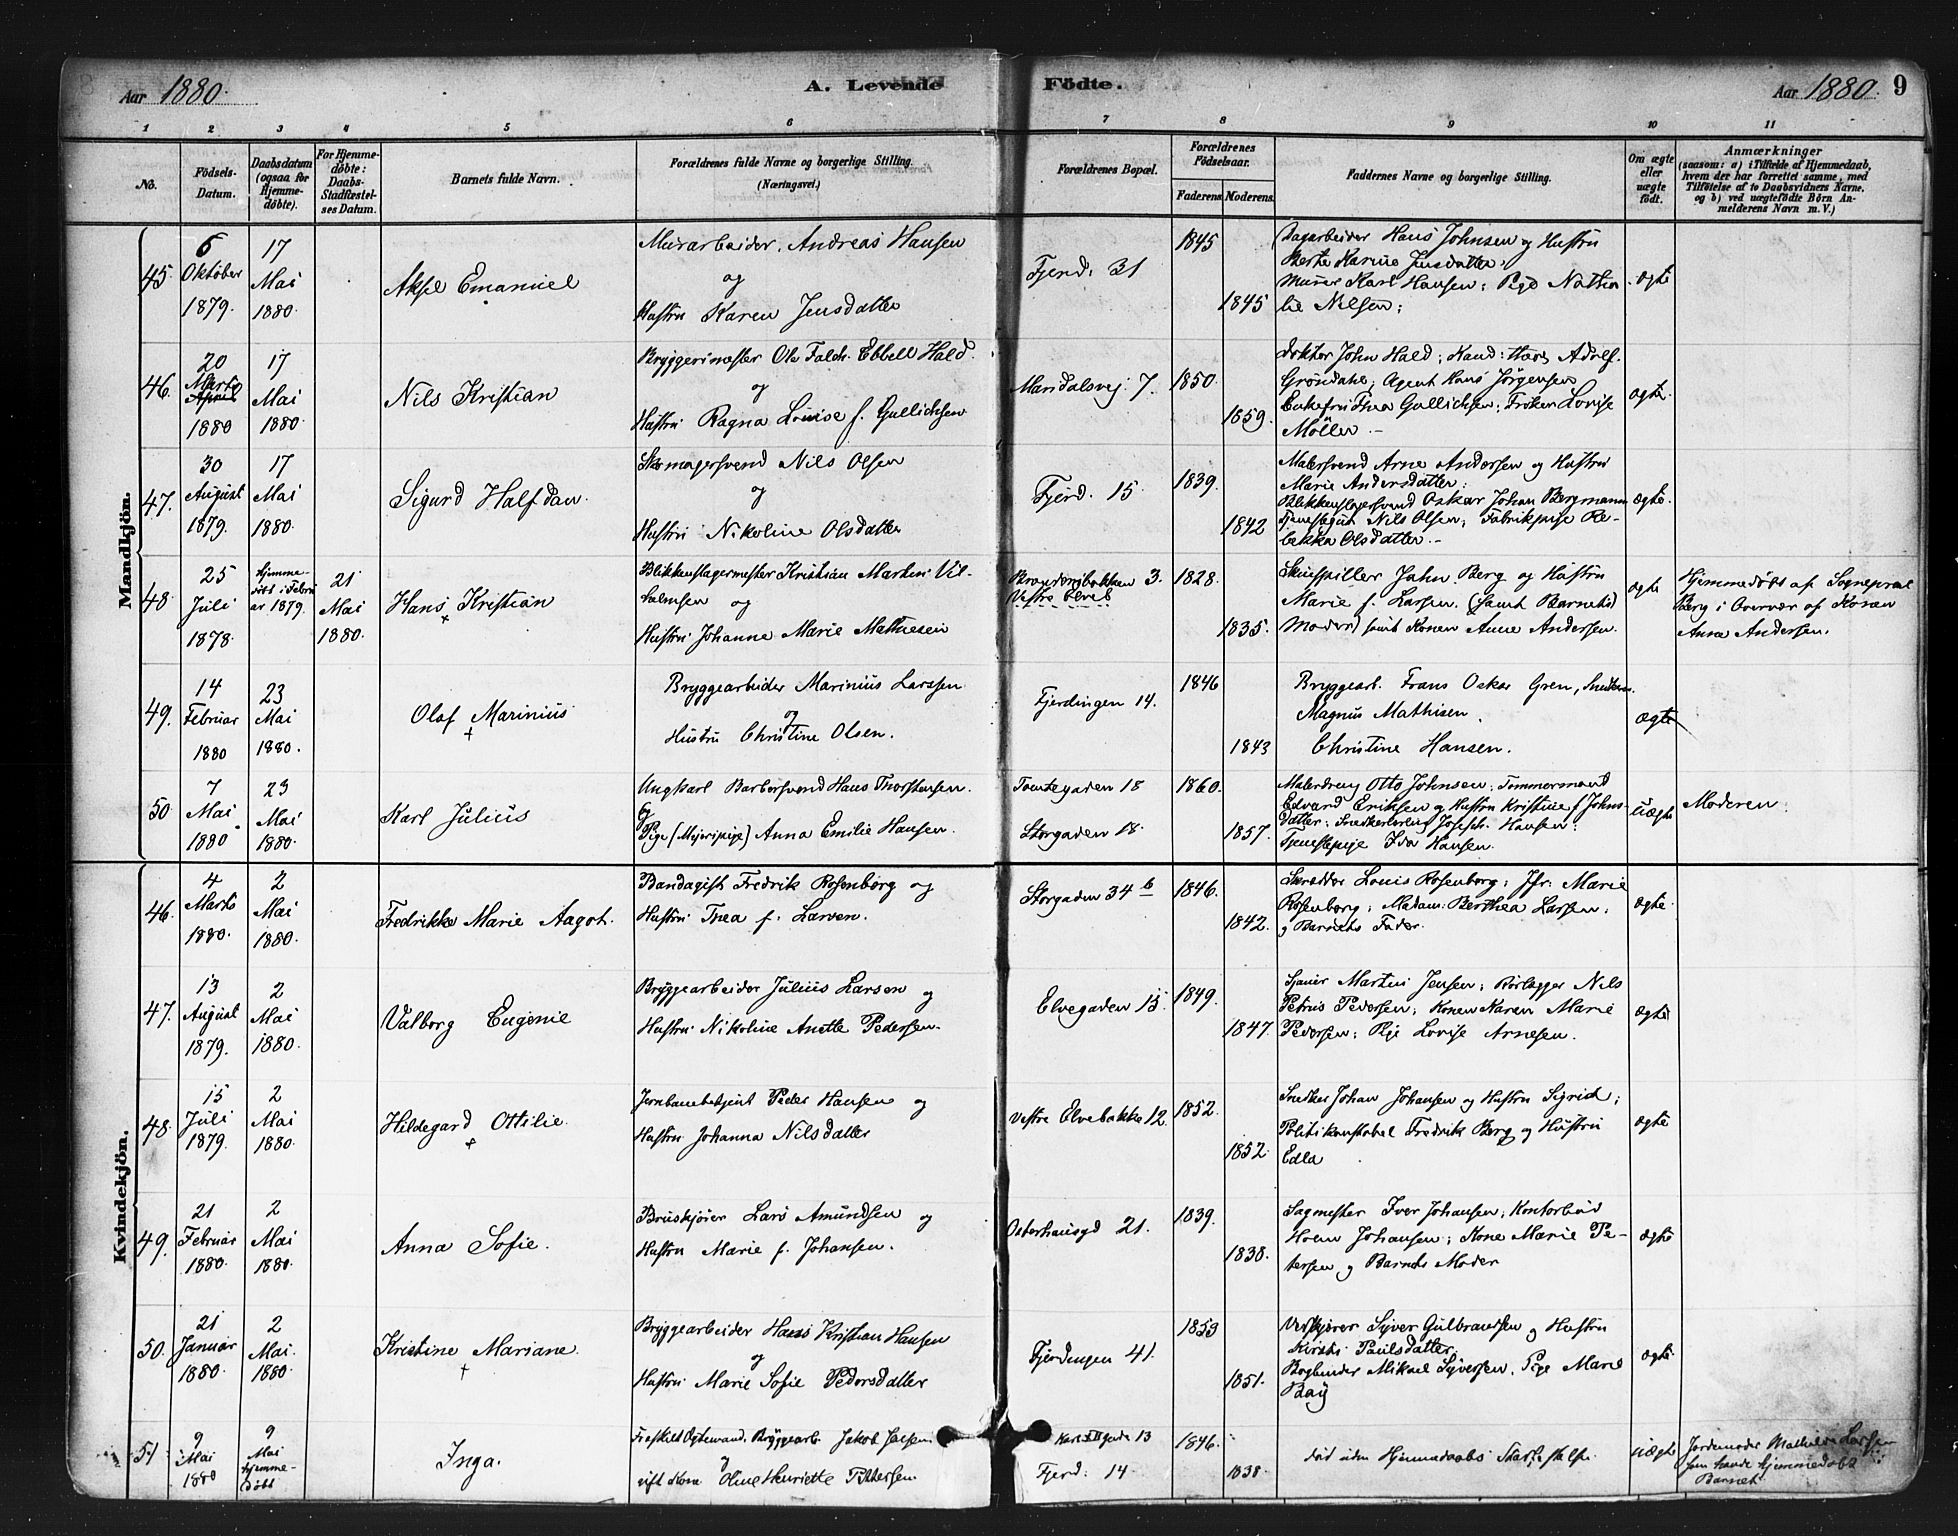 Aar 1880. A. Levende Födte. Aar 1880. 9
1 2 3 4 5 6 7 8 9 10 11
No.
Födsels-Datum.
Daabsdatum (ogsaa for Hjemme-döbte).
For Hjemme-döbte: Daabs-Stadfæstel-ses Datum.
Barnets fulde Navn.
Forældrenes fulde Navne og borgerlige Stilling. (Næringsvei.)
Forældrenes Bopæl.
Forældrenes Födselsaar.
Faderens. Moderens.
Faddernes Navne og borgerlige Stilling.
Om ægte eller uægte födt.
Anmærkninger
(saasom: a) i Tilfælde af Hjemmedaab, hvem der har forrettet samme, med Tilföielse af to Daabsvidners Navne, og b) ved uægtefödte Börn An-melderens Navn m. V.)
Mandkjön.
45. 6 Oktober 1879. 17 Mai 1880.
Aksel Emanuel
Murarbeider. Andreas Hansen
og
Hustru Karen Jensdatter
Fjerd. 31
1845
1845
Dagarbeider Hans Johnsen og Hustru
Berte Karine Jensdatter;
Murer Karl Hansen; Pige Natha
lie Nilsen;
ægte
46. 20 Marts April 1880 17 Mai 1880.
Nils Kristian
Bryggerimester Ole Falch Ebbell Hald.
og
Hustru Ragna Louise f. Gullichsen
Mandalsvej 7.
1850.
1859.
Doktor John Hald; Kand: Adolf.
Gröndahl; Agent Hans Jörgensen
Enkefru Thea Gullichsen; Fröken Lovise
Möller.-
ægte.
47. 30 August 1879. 17 Mai 1880.
Sigurd Halfdan.
Skomagersvend Nils Olsen
og
Hustru Nikoline Olsdatter
Fjerd. 15.
1839.
1842
Malersvend Arne Andersen og Hustru
Marie Andersdatter;
Blikkenslagersvend Oskar Johan Bergmann
Tjenestegut Nils Olsen; Fabrikpige Re-
bekka Olsdatter.-
ægte.
48. 25 Juli 1878. Hjemme-döbt i Febru ar 1879. 21 Mai 1880.
Hans Kristian
Blikkenslagermester Kristian Martin Vil-
helmsen og
Hustru Johanne Marie Mathiesen
3.
Vestre Elveb
1828.
1835.
Skuespiller John Berg og Hustru
Marie f. Larsen (samt Barnets)
Moder) samt Konen Anne Andersen.
ægte
Hjemmedöbt af Sogneprest
Berg i Overvær af Konen
Anna Andersen.
49. 14 Februar 1880 23 Mai 1880.
Olaf Marinius
Bryggearbeider Marinius Larssen
og
Hustru Christine Olsen.
Fjerdingen 14.
1846
1843
Bryggearb. Frans Oskar Gren, Snedker
Magnus Mathisen,
Christine Hansen.
ægte
50 7 Mai 1880 23 Mai 1880.
Karl Julius
Ungkarl Barbersvend Hans Thorstensen.
og
Pige (Mejeripige) Anna Emilie Hansen.
Tomtegaden 18
Storgaden 18.
1860.
1857.
Malerdreng Otto Johnsen; Tömmermand
Edvard Eriksen og Hustru Kristine f Johns-
datter; Snedkerlærling Joseph Hansen;
Tjenestepige Ida Hansen.
uægte
Moderen.
Kvindekjön.
46. 4 Marts 1880. 2 Mai 1880.
Fredrikke Marie Aagot.
Bandagist Fredrik Rosenborg og
Hustru Thea f. Larsen.
Storgaden 34 b
1846.
1842.
Skrædder Louis Rosenborg; Jfr. Marie
Rosenborg; Madam: Berthea Larsen;
og Barnets Fader.
ægte.
47. 13 August 1879. 2 Mai 1880.
Valborg Eugenie
Bryggearbeider Julius Larsen og
Hustru Nikoline Anette Pedersen.
Elvegaden 15.
1849.
1847.
Martin Jensen; Rörlægger Nils
Petrus Pedersen; Konen Karen Marie
Pedersen; Pige Lovise Arnesen.
ægte
48. 15 Juli 1879. 2 Mai 1880.
Hildegard Ottilie.
Jernbanebetjent Peder Hansen og
Hustru Johanna Nilsdatter
Vestre Elvebakke 12.
1852.
1852.
Snedker Johan Johansen og Hustru Sigrid;
Politikonstabel Fredrik Berg og Hustru
Edla
ægte
49. 21 Februar 1880. 2 Mai 1880.
Anna Sofie.
Bruskjörer Lars Amundsen og
Hustru Marie f. Johansen.
Osterhausgd 21.
1839.
1838.
Sagmester Iver Johansen; Kontorbud
Johansen; Kone Marie Pe-
tersen og Barnets Moder
ægte
50. 21 Januar 1880. 2 Mai. 1880.
Kristine Mariane.
Bryggearbeider Hans Kristian Hansen
og
Hustru Marie Sofie Pedersdatter
Fjerdingen 41.
1853
1851.
Vedkjörer Syver Gulbrandsen og Hustru
Kirsti Paulsdatter.
Bogbinder Mikael Syversen, Pige Marie
Bay
ægte
51 9 Mai 1880 9 Mai Hjemme-döbt
Inga.
Fraskilt Ægtemand. Bryggearb. Jakob
og
Oline Henriette Pettersen.
Karl XII gade 13
Fjerd: 14
1846.
1838.
död uden Hjemmedaabs Stadfæstelse.
uægte
Jordemoder Mathilde Larsen
som havde hjemmedöbt
Barnet